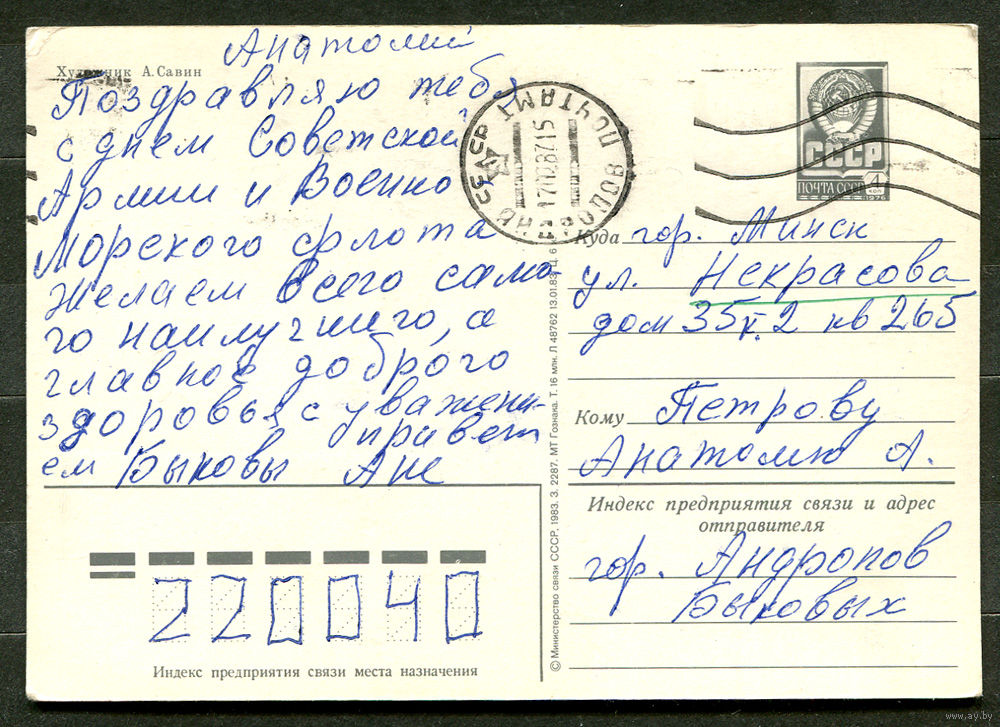 Анатолий
Художник А.Савин
Поздравляю тебя
с днем Советской
Армии и Военно
Морского флота
желаем всего само-
го наилучшего, а
главное доброго
здоровья с уважени-
ем Быковы
привет Ане
Индекс предприятия связи места назначения
220040
© Министерство связи СССР. 1983. З. 2287. МТ Гознака. Т. 16 млн. Л 48762 13.01.83. Ц. 6
АНДРОПОВ ПОЧТАМТ
17028715
СССР
ПОЧТА СССР
4
коп
1976
Куда гор. Минск
ул. Некрасова
дом 35 к. 2 кв 265
Кому Петрову
Анатолию А.
Индекс предприятия связи и адрес
отправителя
гор. Андропов
Быковых
www.ay.by